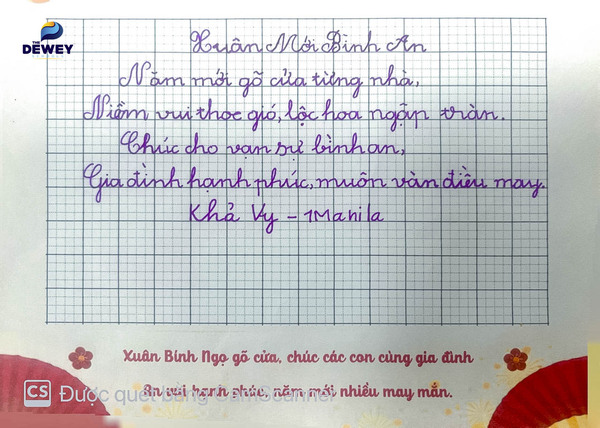 THE
DEWEY
SCHOOLS
Xuân Mới Bình An
Năm mới gõ cửa từng nhà,
Niềm vui theo gió, lộc hoa ngập tràn.
Chúc cho vạn sự bình an,
Gia đình hạnh phúc, muôn vàn điều may.
Khả Vy - 1Manila
Xuân Bính Ngọ gõ cửa, chúc các con cùng gia đình
an vui hạnh phúc, năm mới nhiều may mắn.
CS Được quét bằng CamScanner